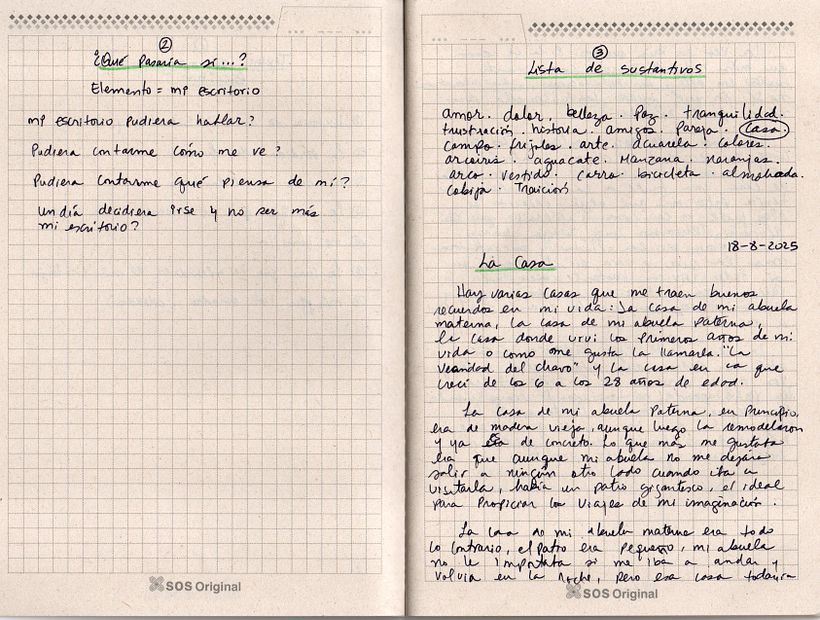 2
¿Qué pasaría si...?
Elemento = mi escritorio
mi escritorio pudiera hablar?
Pudiera contarme cómo me ve?
Pudiera contarme qué piensa de mí?
un día decidiera irse y no ser más
mi escritorio?
SOS Original
3
Lista de sustantivos
amor. dolor. belleza. Paz. tranquilidad.
frustración. historia. amigos. Pareja. casa.
campo. frijoles. arte. acuarela. colores.
arcoiris. aguacate. Manzana. naranjas.
arco. vestido. carro. bicicleta. almohada.
cobija. Traición
18-8-2025
La Casa
Hay varias casas que me traen buenos
recuerdos en mi vida: La casa de mi abuela
materna, la casa de mi abuela paterna,
la casa donde viví los primeros años de mi
vida o como me gusta la llamarla. "La
vecindad del chavo" y la casa en la que
crecí de los 6 a los 28 años de edad.
La casa de mi abuela Paterna, en principio,
era de madera vieja, aunque luego la remodelaron
y ya es de concreto. Lo que más me gustaba
era que aunque mi abuela no me dejara
salir a ningún otro lado cuando iba a
visitarla, había un patio gigantesco, el ideal
para propiciar los viajes de mi imaginación.
La casa de mi abuela materna era todo
lo contrario, el patio era pequeño, mi abuela
no le importaba si me iba a andar y
volvía en la noche, pero esa casa todavía
SOS Original